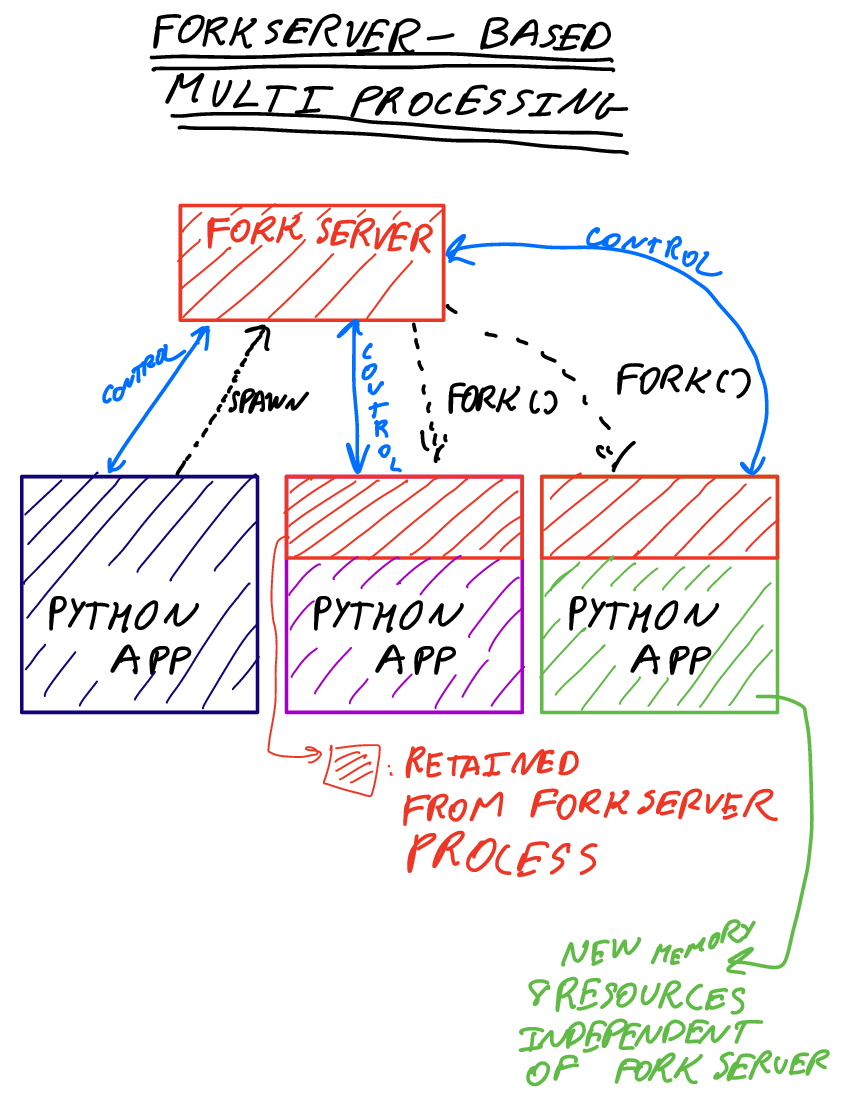 FORKSERVER- BASED
MULTI PROCESSING
FORK SERVER
CONTROL
CONTROL
SPAWN
CONTROL
FORK()
FORK()
PYTHON
APP
PYTHON
APP
PYTHON
APP
: RETAINED
FROM FORKSERVER
PROCESS
NEW MEMORY
& RESOURCES
INDEPENDENT
OF FORK SERVER